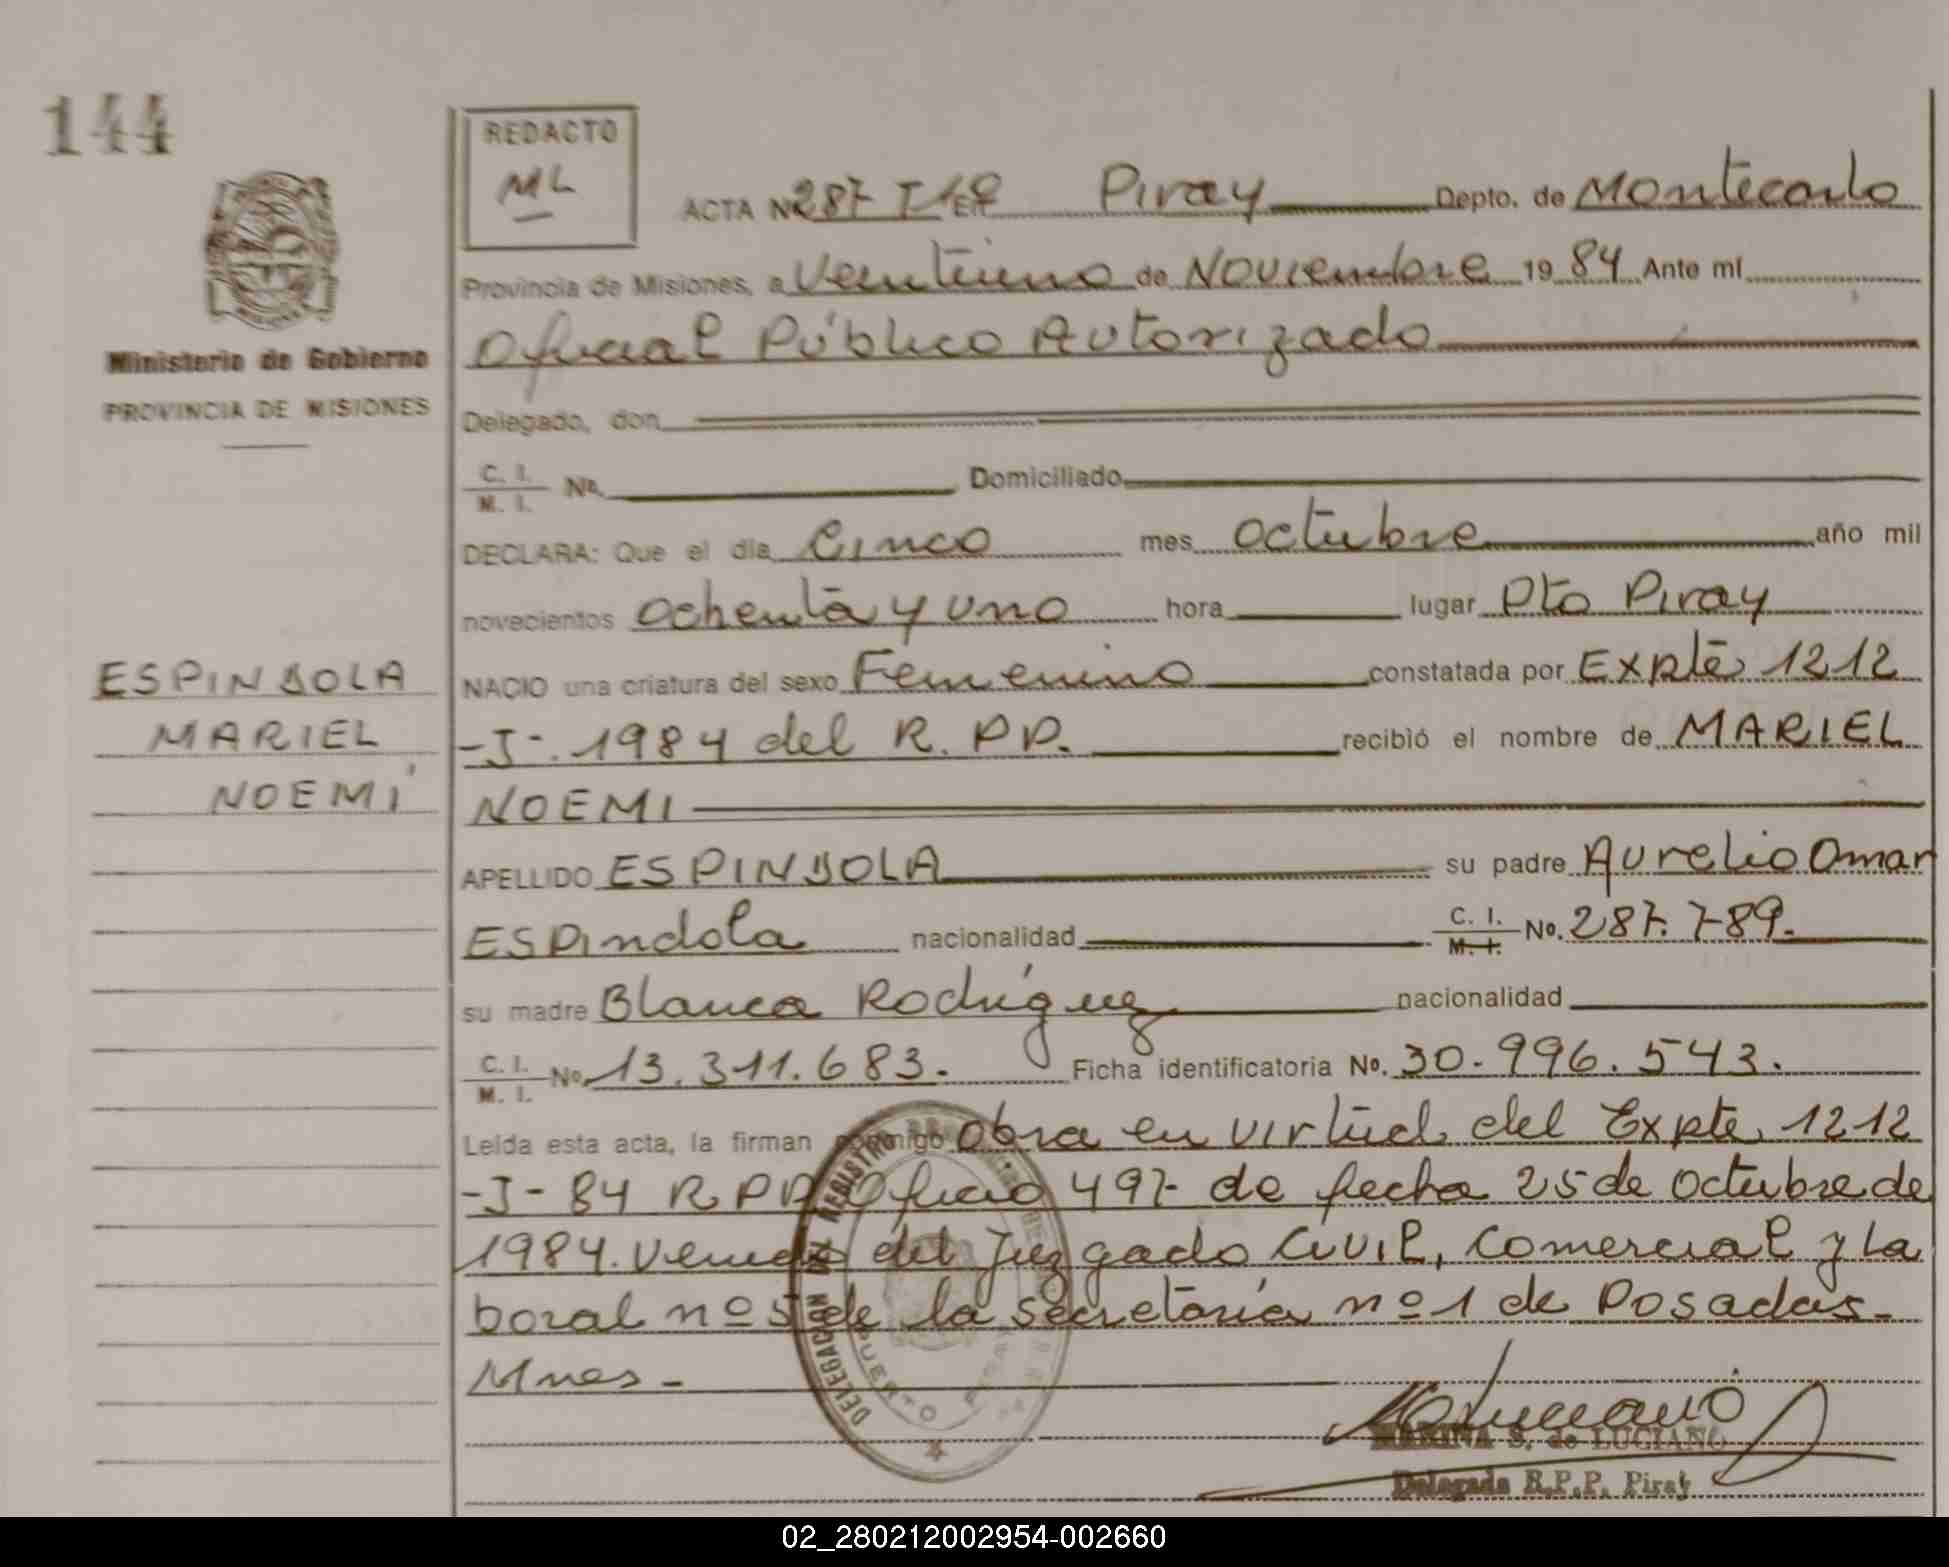 144
REDACTO
ML
ACTA Nº 287 T 1º EN Piray Depto. de Montecarlo
Provincia de Misiones, a Veintiuno de Noviembre 19 84 Ante mí
Oficial Público Autorizado
Ministerio de Gobierno
PROVINCIA DE MISIONES
Delegado, don
C. I.
M. I. Nº. Domiciliado
DECLARA: Que el día Cinco mes octubre año mil
novecientos ochenta y uno hora lugar Pto Piray
ESPINDOLA
MARIEL
NOEMÍ
NACIO una criatura del sexo Femenino constatada por Expte 1212
-J-. 1984 del R. PP. recibió el nombre de MARIEL
NOEMI
APELLIDO ESPINDOLA su padre Aurelio Omar
ESPindola nacionalidad C. I. M. I. No. 287.789.
su madre Blanca Rodríguez nacionalidad
C. I. M. I. Nº 13.311.683. Ficha identificatoria No. 30.996.543.
Leída esta acta, la firman conmigo obra en virtud del Expte 1212
-J- 84 R PP Oficio 497 de fecha 25 de Octubre de
1984. Venido del Juzgado Civil, Comercial y La
boral nº 5 de la secretaría nº 1 de Posadas-
Mnes-
DELEGACION DEL REGISTRO
PUERTO PIRAY
MARINA S. de LUCIANO
Delegada R.P.P. Piray
02_280212002954-002660